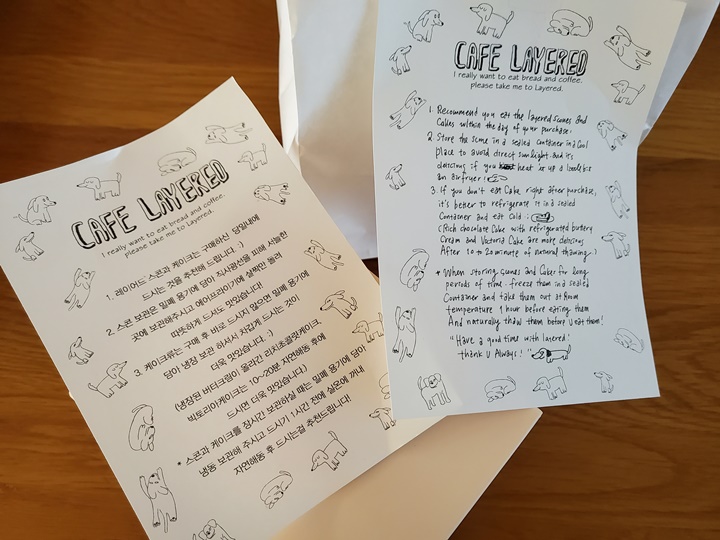 CAFE LAYERED
I really want to eat bread and coffee.
please take me to Layered.
1. 레이어드 스콘과 케이크는 구매하신 당일내에
드시는 것을 추천해 드립니다. :)
2. 스콘 보관은 밀폐 용기에 담아 직사광선을 피해 서늘한
곳에 보관해주시고 에어프라이기에 살짝만 돌려
따뜻하게 드셔도 맛있습니다!
3. 케이크류는 구매 후 바로 드시지 않으면 밀폐 용기에
담아 냉장 보관 하셔서 차갑게 드시는 것이
더욱 맛있습니다. :)
(냉장된 버터크림이 올라간 리치초콜릿케이크,
빅토리아케이크는 10~20분 자연해동 후에
드시면 더욱 맛있습니다.)
* 스콘과 케이크를 장시간 보관하실 때는 밀폐 용기에 담아
냉동 보관해 주시고 드시기 1시간 전에 실온에 꺼내
자연해동 후 드시는걸 추천드립니다!
CAFE LAYERED
I really want to eat bread and coffee.
please take me to Layered.
1. Recommend you eat the layered scones and
Cakes within the day of your purchase.
2. Store the scone in a sealed container in a Cool
place to avoid direct sunlight. and it's
delicious if you heat it up a little bit
an airfryer!
3. If you don't eat Cake right after purchase,
it's better to refrigerate it in a sealed
Container and eat Cold :
(Rich chocolate Cake with refrigerated buttery
Cream and Victoria Cake are more delicious
After 10 to 20 minute of natural thawing.)
* When storing scones and Cakes for long
periods of time. freeze them in a sealed
Container and take them out at Room
temperature 1 hour before eating them
And naturally thaw them before U eat them!
"Have a good time with layered!
thank U Always! "